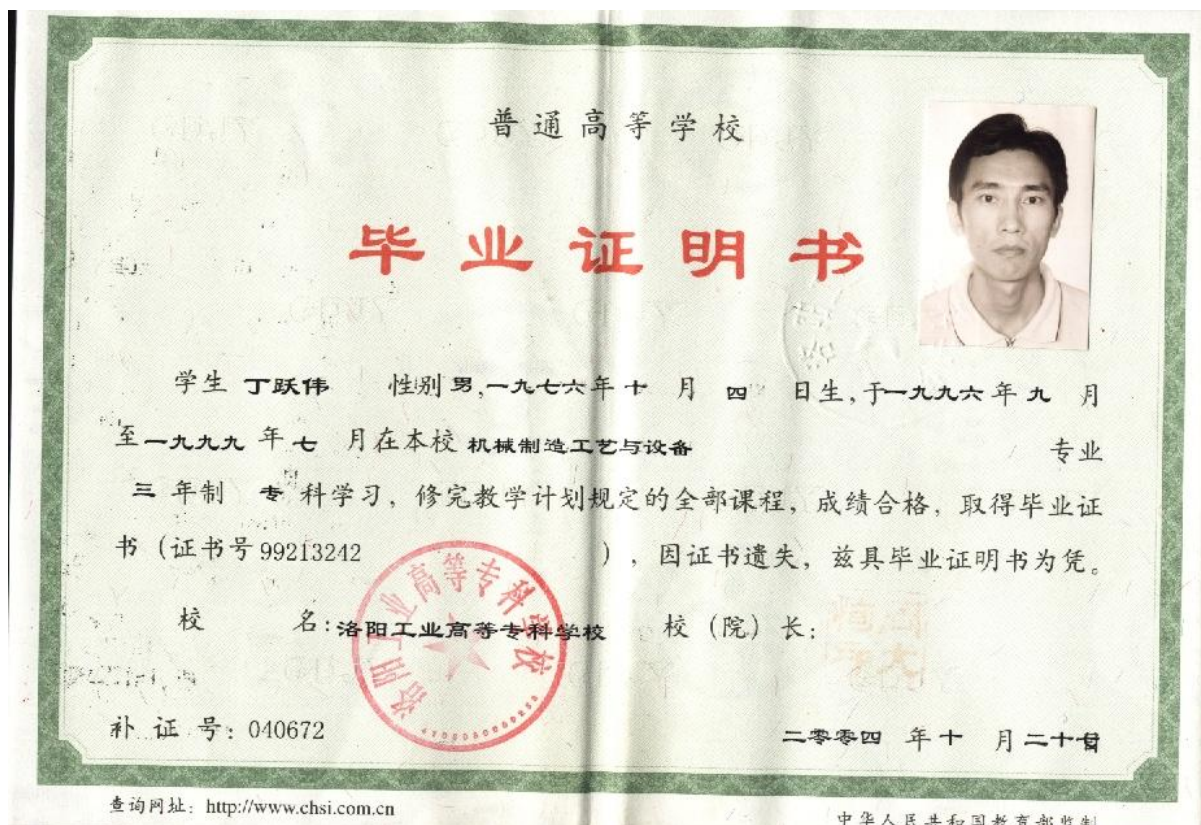 普通高等学校
毕业证明书
学生 丁跃伟 性别 男,一九七六年 十 月 四 日生,于一九九六 年 九 月
至一九九九 年 七 月在本校 机械制造工艺与设备 专业
三 年制 专 科学习, 修完教学计划规定的全部课程, 成绩合格, 取得毕业证
书 (证书号 99213242 ), 因证书遗失, 兹具毕业证明书为凭。
校 名: 洛阳工业高等专科学校 校 (院) 长:
洛阳工业高等专科学校
补 证 号: 040672 二零零四 年 十 月 二十
查询网址: http://www.chsi.com.cn 中华人民共和国教育部监制